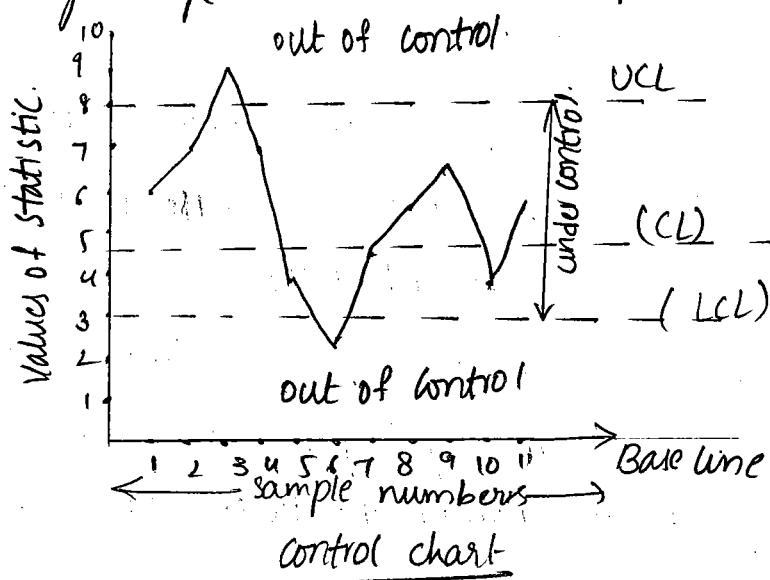 out of control.
UCL
(CL)
(LCL)
under control.
out of control
Values of statistic.
10
9
8
7
6
5
4
3
2
1
1 2 3 4 5 6 7 8 9 10 11
Base line
sample numbers
control chart